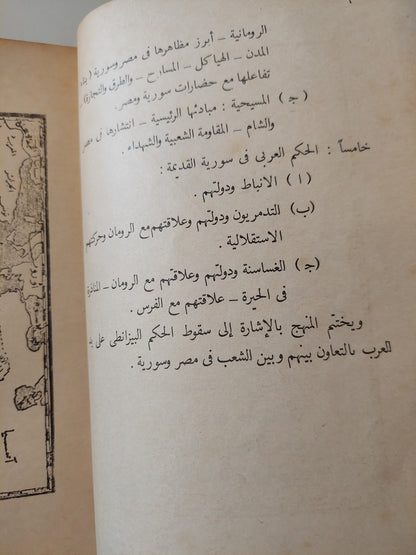 الرومانية – أبرز مظاهرها فى مصر وسورية (بناء
المدن – الهياكل – المسارح – والطرق والتجارة) –
تفاعلها مع حضارات سورية ومصر.
(ج) المسيحية : مبادئها الرئيسية – انتشارها فى مصر
والشام – المقاومة الشعبية والشهداء .
خامساً : الحكم العربى فى سورية القديمة :
(ا) الأنباط ودولتهم .
(ب) التدمريون ودولتهم وعلاقتهم مع الرومان وحركتهم
الاستقلالية .
(ج) الغساسنة ودولتهم وعلاقتهم مع الرومان – المناذرة
فى الحيرة – علاقتهم مع الفرس .
ويختتم المنهج بالإشارة إلى سقوط الحكم البيزانطى على
العرب بالتعاون بينهم وبين الشعب فى مصر وسورية .
آسيا